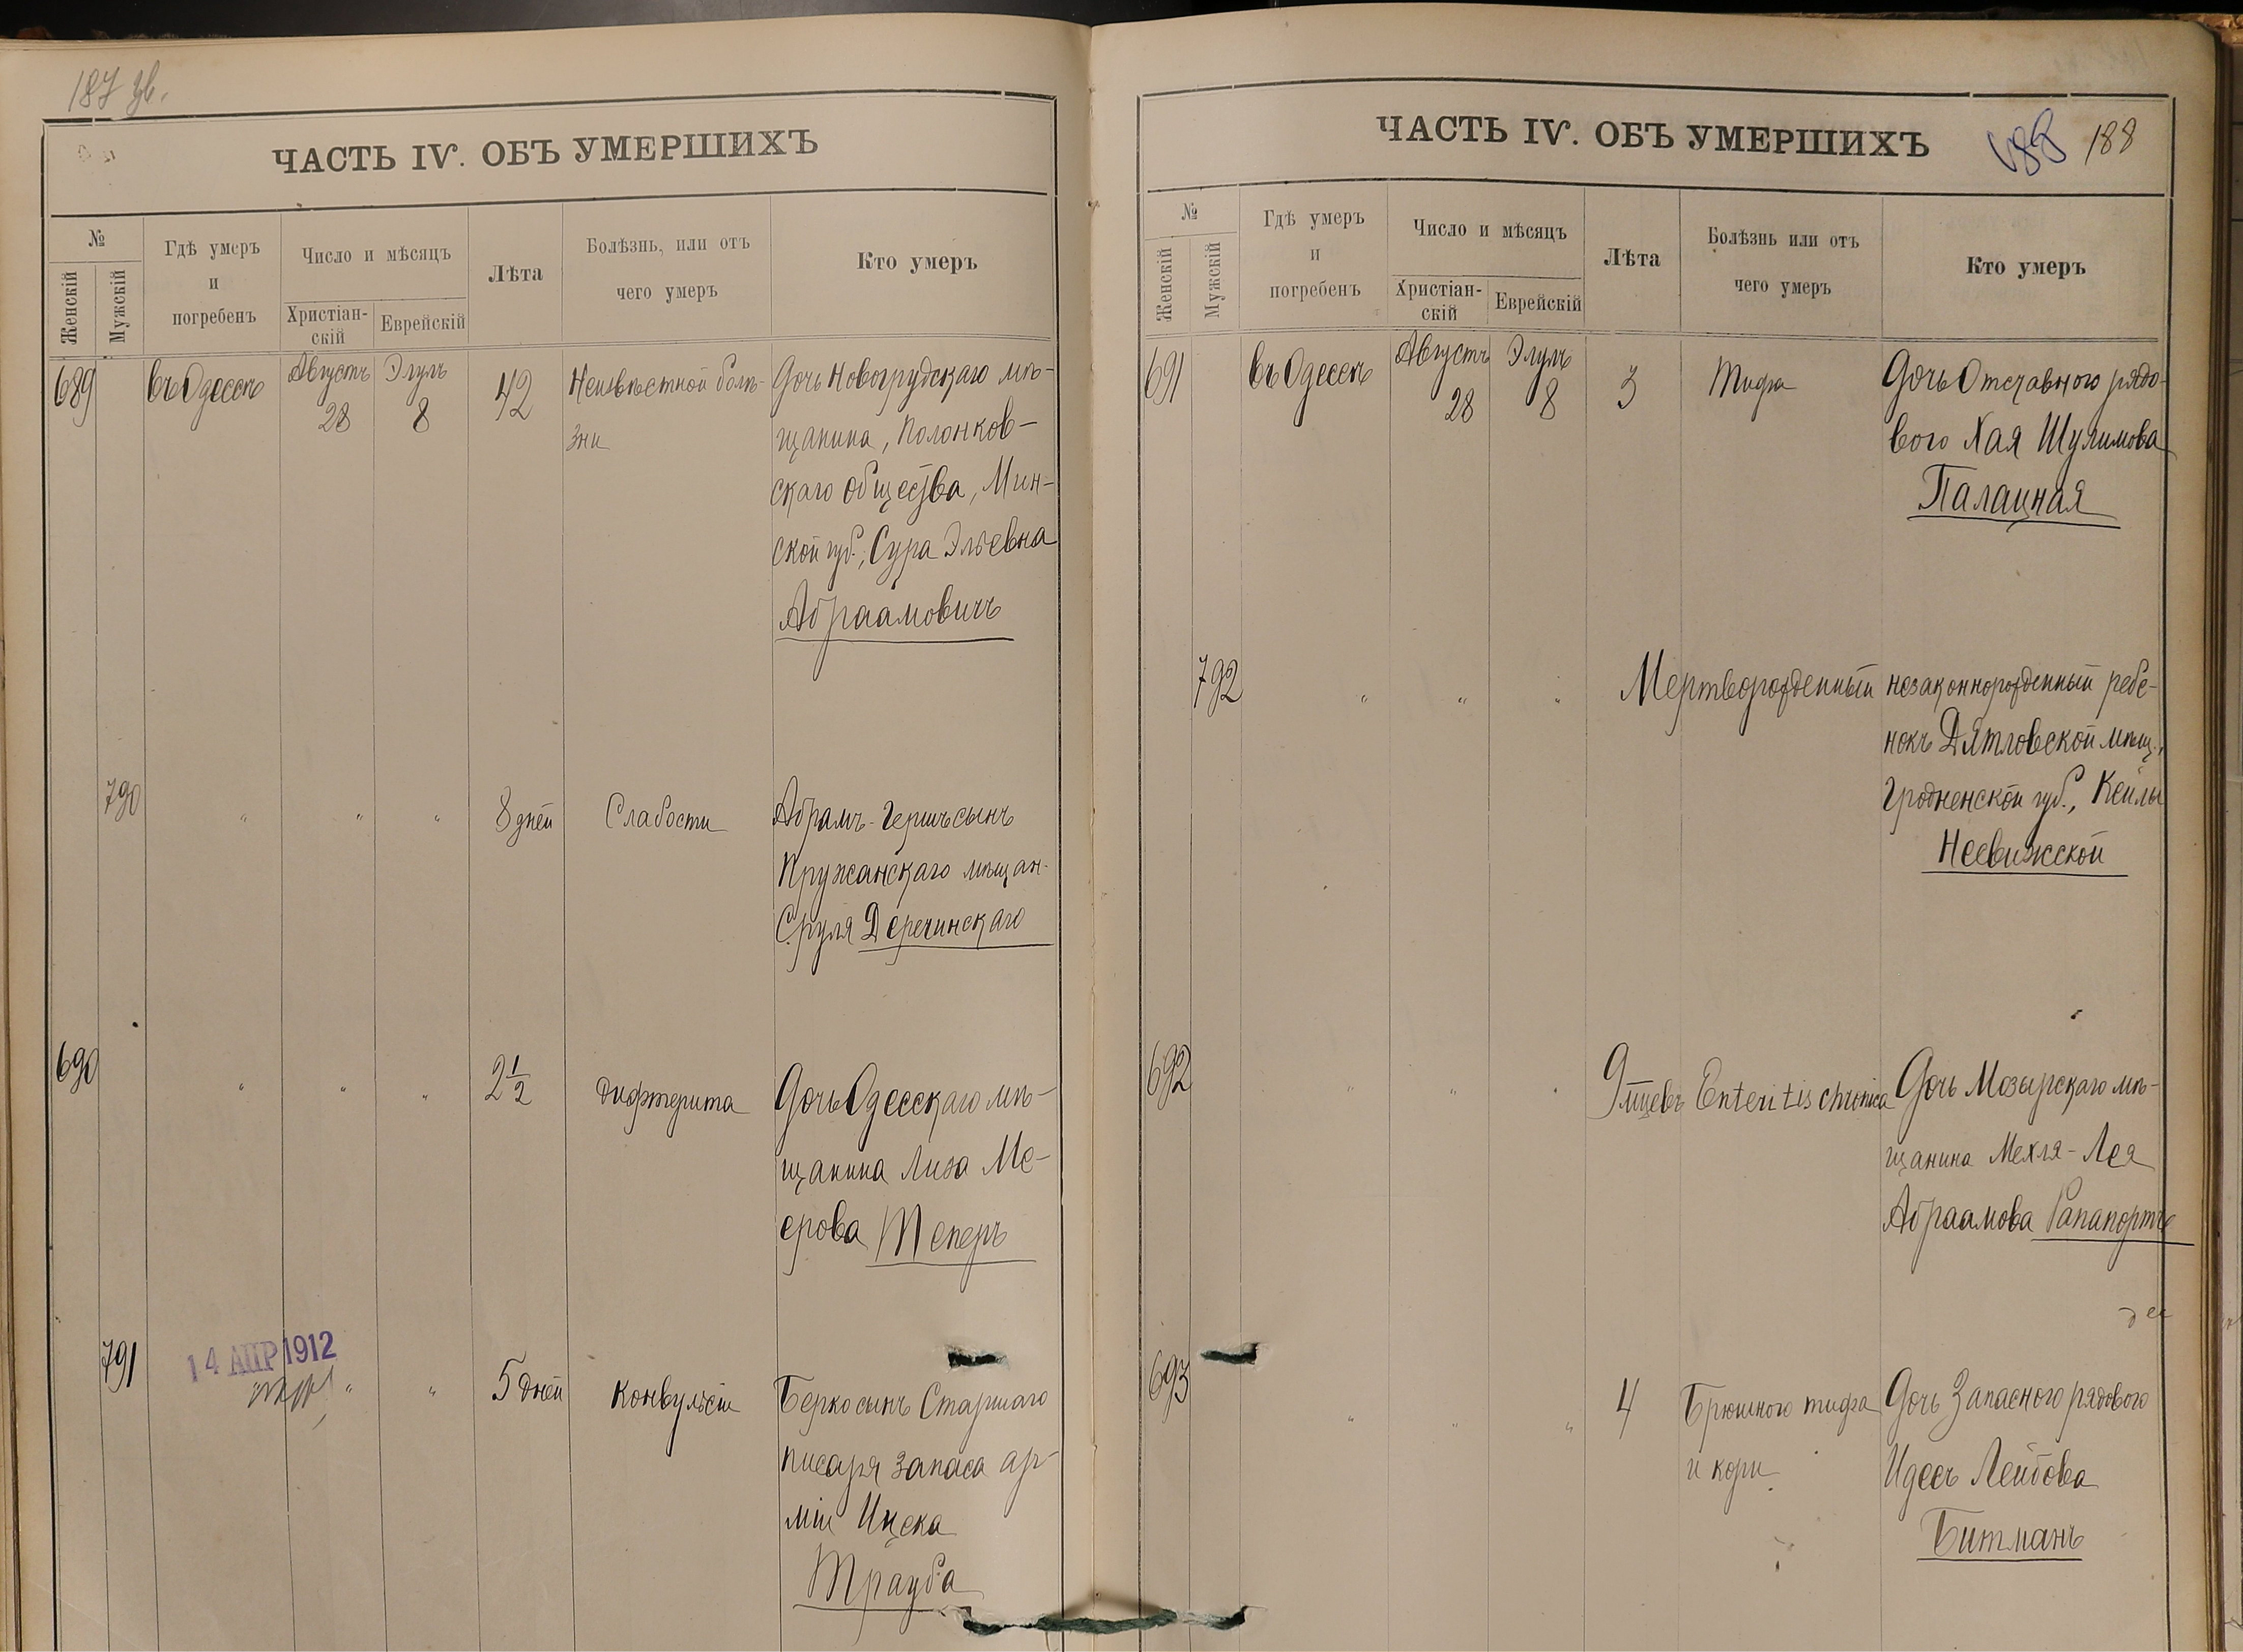 187 зв.
ЧАСТЬ IV. ОБЪ УМЕРШИХЪ
№
Женскій
Мужскій
Гдѣ умеръ
и
погребенъ
Число и мѣсяцъ
Христіан-
скій
Еврейскій
Лѣта
Болѣзнь, или отъ
чего умеръ
Кто умеръ
689
въ Одессѣ
Августъ
28
Элулъ
8
42
Неизвѣстной болѣ-
зни
Дочь Новогрудскаго мѣ-
щанина, Полонков-
скаго общества, Мин-
ской губ., Сура Эльевна
Абраамовичъ
790
" " "
8 дней
Слабости
Абрамъ-Гершъ сынъ
Пружанскаго мѣщан.
Сруля Деречинскаго
690
" " "
2 1/2
Дифтерита
Дочь Одесскаго мѣ-
щанина Лиза Ме-
ерова Теперъ
791
14 АПР 1912
" " "
5 дней
Конвульсіи
Берко сынъ Старшаго
писаря запаса ар-
міи Ицека
Трауба
ЧАСТЬ IV. ОБЪ УМЕРШИХЪ
188 188
№
Женскій
Мужскій
Гдѣ умеръ
и
погребенъ
Число и мѣсяцъ
Христіан-
скій
Еврейскій
Лѣта
Болѣзнь или отъ
чего умеръ
Кто умеръ
691
въ Одессѣ
Августъ
28
Элулъ
8
3
Тифа
Дочь Отставного рядо-
вого Хая Шулимова
Палацная
792
" " "
Мертворожденный
незаконнорожденный ребе-
нокъ Дятловской мѣщ.,
Гродненской губ., Кейлы
Несвижской
692
" " "
9 мцевъ
Enteritis chronica
Дочь Мозырскаго мѣ-
щанина Мехля-Лея
Абраамова Рапапортъ
693
" " "
4
Брюшного тифа
и кори
Дочь Запасного рядового
Идесъ Лейбова
Битманъ